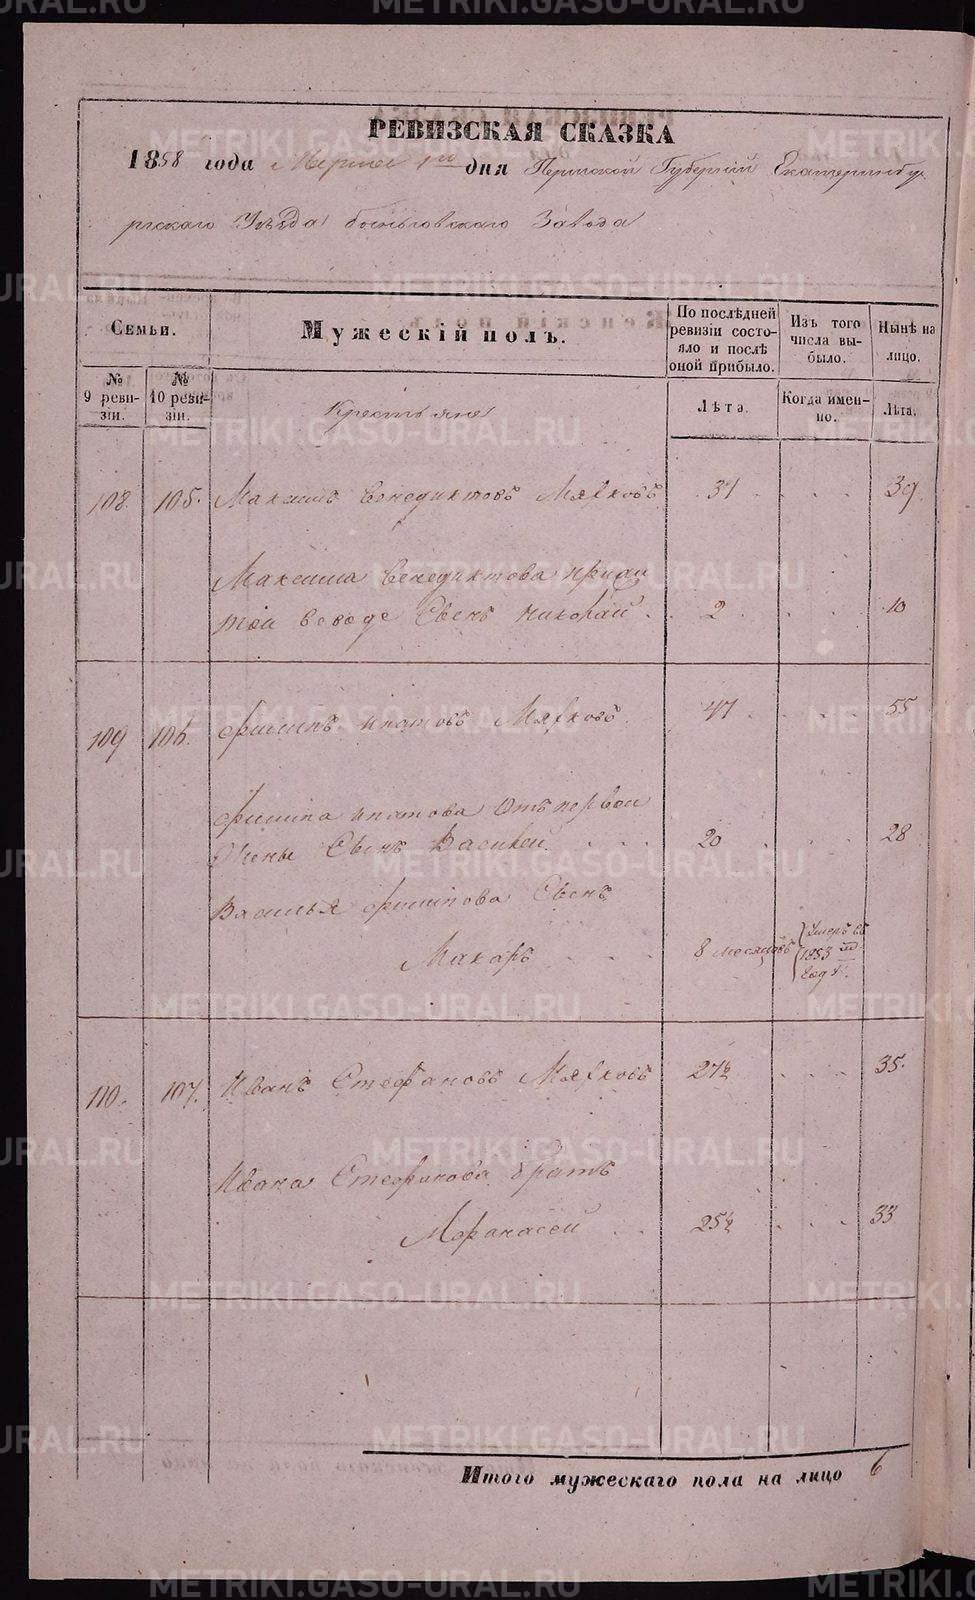 РЕВИЗСКАЯ СКАЗКА
1858 года Марта 1го дня Пермской Губернiй Екатеринбу
ргскаго Уѣзда Быньговскаго Завода
Семьи.
Мужескiй полъ.
По послѣдней ревизiи состояло и послѣ оной прибыло.
Изъ того числа выбыло.
Нынѣ на лицо.
№ 9 ревизiи.
№ 10 ревизiи.
Лѣта.
Когда именно.
Лѣта.
Крестьяне
108. 105. Максимъ Венедиктовъ Мяхковъ 31 39
Максима Венедиктова
Сынъ Николай 2 10
109 106. Филипъ Ипатовъ Мяхковъ 47 55
Филипа Ипатова Отъ первой
Жены Сынъ Василей 20 28
Василья Филипова Сынъ
Макаръ 8 месяцовъ Умеръ въ 1853 м Году.
110. 107. Иванъ Стефановъ Мяхковъ 27½ 35.
Ивана Стефанова братъ
Афанасей 25½ 33
Итого мужескаго пола на лицо 6
METRIKI.GASO-URAL.RU